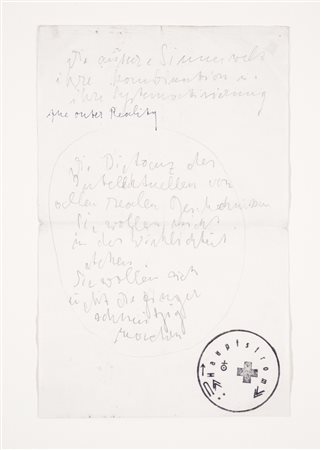 die äußere Sinneswelt
ihre Kombination u.
ihre Systematisierung
the outer Reality
die Distanz des
Intellektuellen von
allen realen Geschehnissen
Sie wollen nicht
in der Wirklichkeit
stehen.
Sie wollen sich
nicht die Finger
schmutzig
machen
Hauptstrom